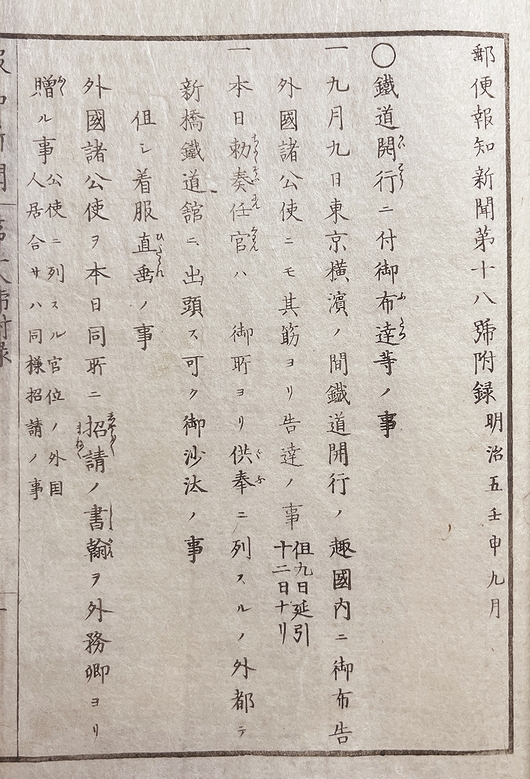 郵便報知新聞第十八號附録 明治五壬申九月
〇鐵道開行ニ付御布達等ノ事
一九月九日東京横濱ノ間鐵道開行ノ趣國内ニ御布告
外國諸公使ニモ其筋ヨリ告達ノ事 但九日延引
十二日ナリ
一本日勅奏任官ハ 御所ヨリ供奉ニ列スルノ外都テ
新橋鐵道舘ニ出頭ス可ク御沙汰ノ事
但シ着服直垂ノ事
外國諸公使ヲ本日同所ニ招請ノ書翰ヲ外務卿ヨリ
贈ル事 公使ニ列スル官位ノ外国
人居合サハ同様招請ノ事